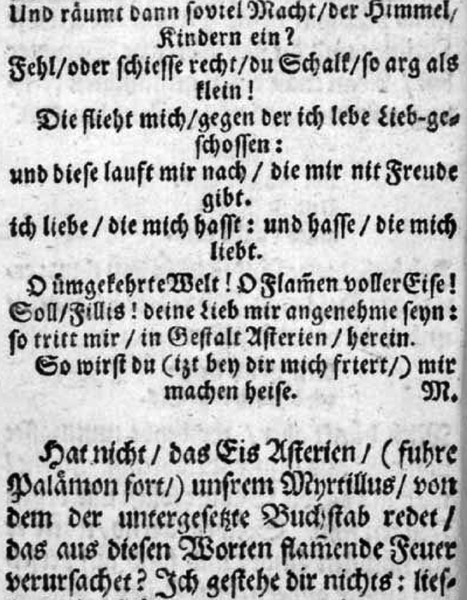 Und räumt dann soviel Macht/der Himmel/
Kindern ein?
Fehl/oder schiesse recht/du Schalk/so arg als
klein!
Die flieht mich/gegen der ich lebe Lieb-ge-
schossen:
und diese lauft mir nach / die mir nit Freude
gibt.
ich liebe / die mich hasst: und hasse / die mich
liebt.
O ümgekehrte Welt! O Flam̃en voller Eise!
Soll/Fillis! deine Lieb mir angenehme seyn:
so tritt mir / in Gestalt Asterien / herein.
So wirst du (izt bey dir mich friert/) mir
machen heise. M.
Hat nicht / das Eis Asterien / (fuhre
Palämon fort/) unsrem Myrtillus/ von
dem der untergesetzte Buchstab redet /
das aus diesen Worten flam̃ende Feuer
verursachet? Ich gestehe dir nichts: lies-